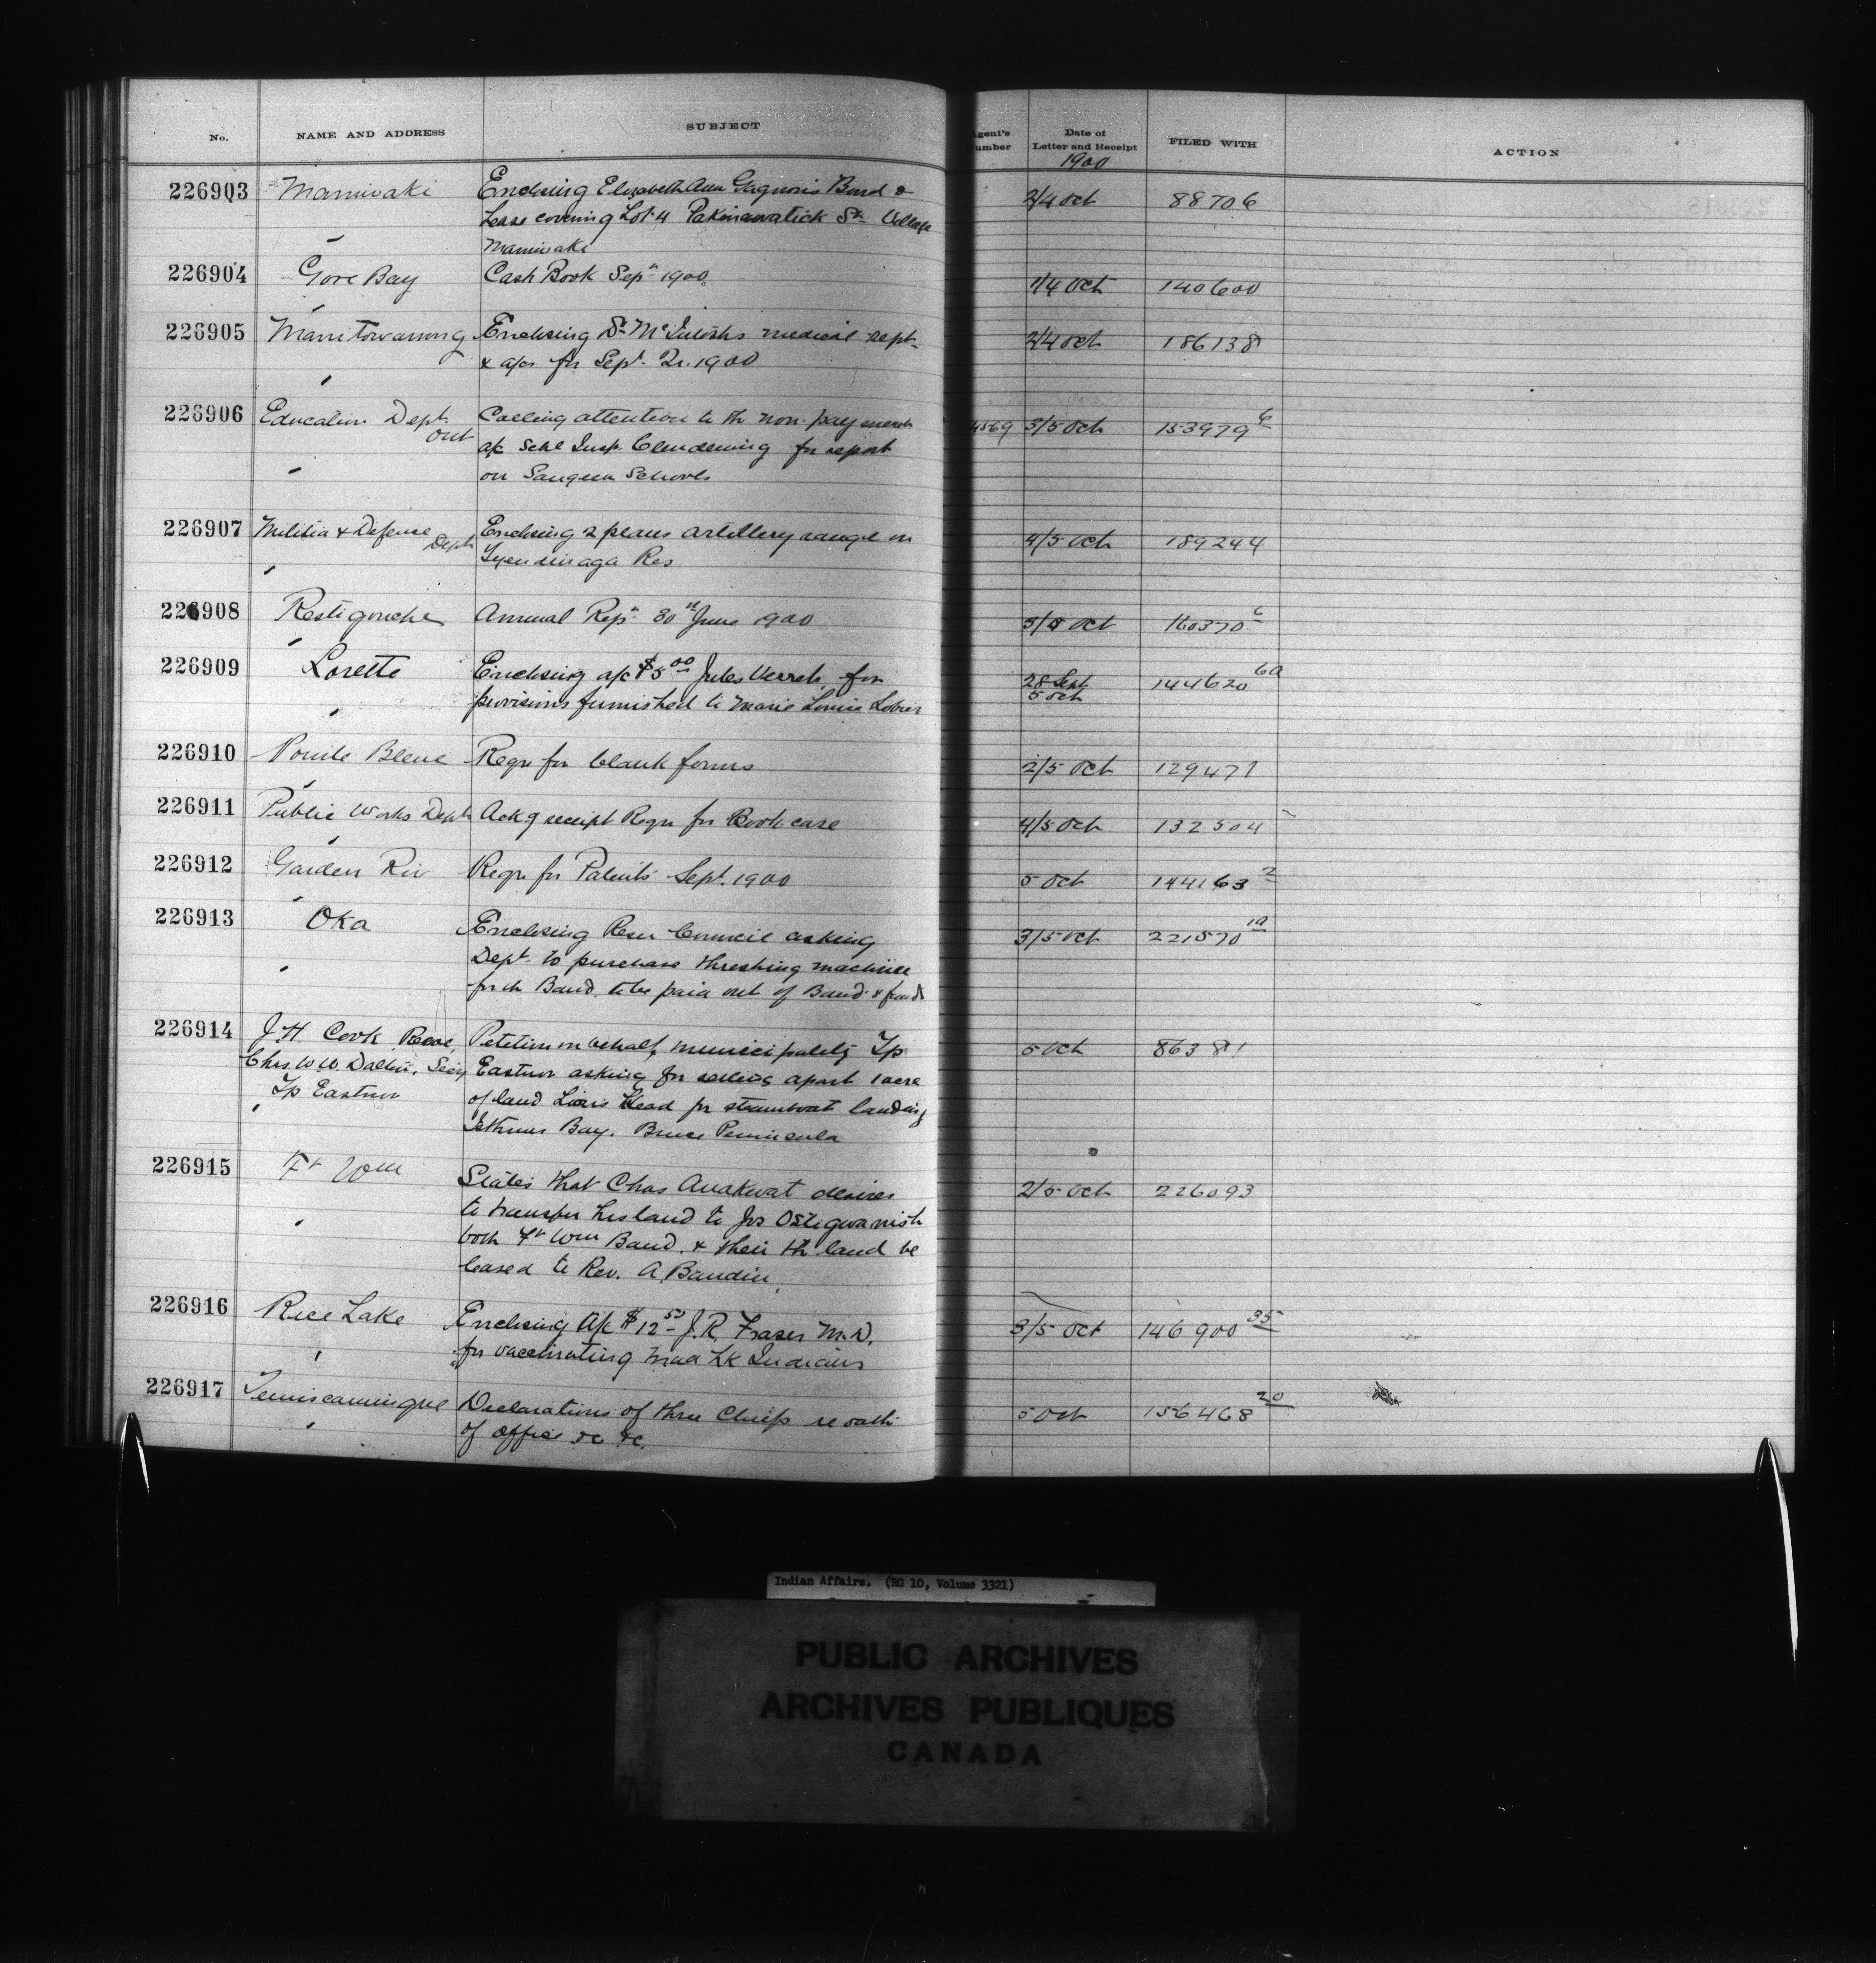 No. NAME AND ADDRESS SUBJECT Agent's Number Date of Letter and Receipt FILED WITH ACTION
1900
226903 Maniwaki Enclosing Elizabeth Ann Gagnon's Bond & 2/4 Oct 88706
Lease covering Lot 4 Pakinawatick St. Village
Maniwaki
226904 Gore Bay Cash Book Sepr 1900 1/4 Oct 140600
226905 Manitowaning Enclosing Dr McIntosh's medical rept 2/4 Oct 186138
& a/cs for Sept. Qr. 1900
226906 Education Dept. Ont Calling attention to th non-payment 4569 3/5 Oct 153979 6
a/c Schl Insp. Clendening for report
on Saugeen Schools
226907 Militia & Defense Dept Enclosing 2 plans artillery range on 4/5 Oct 189244
Tyendinaga Res
226908 Restigouche Annual Rept 30th June 1900 3/5 Oct 160370 6
226909 Lorette Enclosing a/c $5.00 Jules Verret for 28 Sept 144620 60
provisions furnished to Marie Louise 5 Oct
226910 Pointe Bleue Reqn for blank forms 2/5 Oct 129471
226911 Public Works Dept Ackg receipt Reqn for Book case 4/5 Oct 132504
226912 Garden Riv Reqn for Patents Sept. 1900 5 Oct 144163 2
226913 Oka Enclosing Resn Council asking 3/5 Oct 221570 19
Dept. to purchase threshing machine
for th Band, to be paid out of Band's funds
226914 J. H. Cook, Reeve, Petition on behalf municipality Tp 5 Oct 86381
Chas W. W. Secy Eastnor asking for setting apart 1 acre
Tp Eastnor of land Lions Head for steamboat landing
Isthmus Bay. Bruce Peninsula
226915 Ft Wm States that Chas Anakwat desires 2/5 Oct 226093
to transfer his land to Jos Ostigwanish
both Ft Wm Band, & then th land be
leased to Rev. A. Baudin
226916 Rice Lake Enclosing A/c $12.50 J. R. Fraser M.D. 3/5 Oct 146900 35
for vaccinating Mud Lk Indians
226917 Temiscamingue Declarations of three Chiefs re oath 5 Oct 156468 20
of office &c &c.
Indian Affairs. (RG 10, Volume 3321)
PUBLIC ARCHIVES
ARCHIVES PUBLIQUES
CANADA